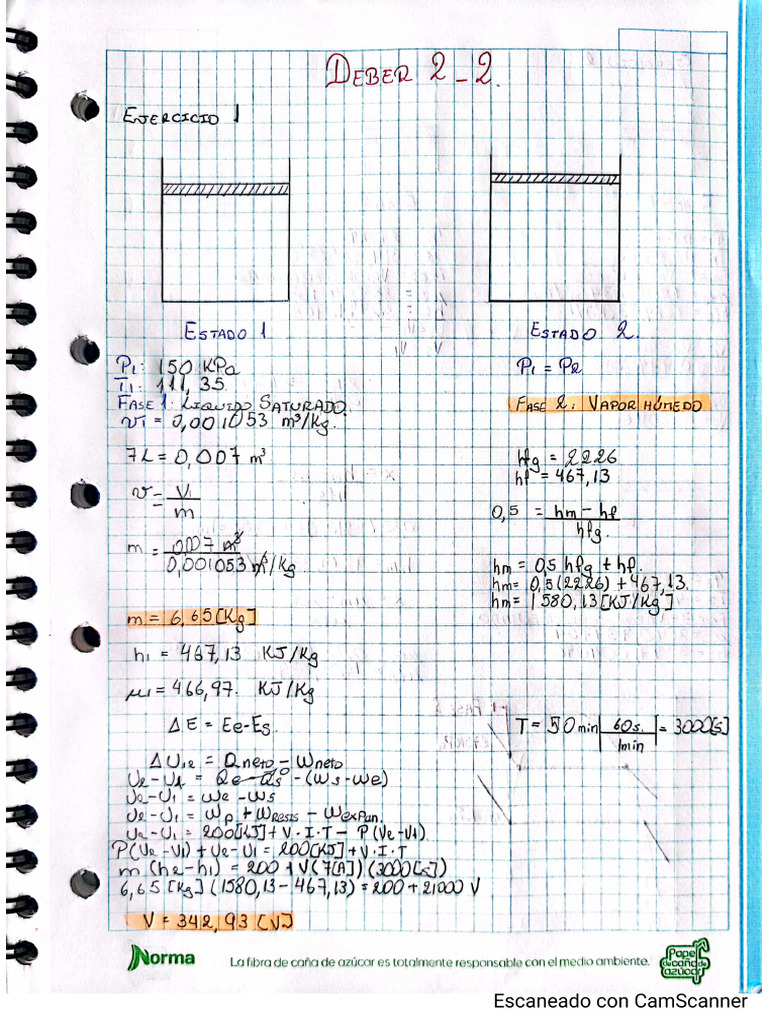 DEBER 2-2.
EJERCICIO 1
ESTADO 1
P1: 150 KPa
T1: 111,35
FASE 1: LIQUIDO SATURADO.
v1 = 0,001053 m³/Kg.
7L = 0,007 m³
v = V/m
m = 0,007 m³ / 0,001053 m³/Kg
m = 6,65 [Kg]
h1 = 467,13 KJ/Kg
μ1 = 466,97. KJ/Kg
ΔE = Ee-Es.
ΔU12 = Qneto - Wneto
U2-U1 = Qe - Qs⁰ - (Ws-We)
U2-U1 = We - Ws
U2-U1 = Wp + WResis - Wexpan.
U2-U1 = 200[KJ] + V·I·T - P(V2-V1)
P(V2-V1) + U2-U1 = 200[KJ] + V·I·T
m (h2-h1) = 200 + V(7[A])(3000[s])
6,65 [Kg] (1580,13-467,13) = 200 + 21000 V
V = 342,93 [V]
ESTADO 2.
P1 = P2
FASE 2: VAPOR HÚMEDO
Hfg = 2226
hf = 467,13
0,5 = hm - hf / hfg.
hm = 0,5 hfg + hf.
hm = 0,5 (2226) + 467,13.
hm = 1580,13 [KJ/Kg]
T = 50 min | 60s. / 1min | = 3000[s]
Norma
La fibra de caña de azúcar es totalmente responsable con el medio ambiente.
Papel
de caña de
azúcar
Escaneado con CamScanner